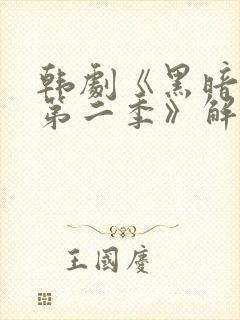 韩劇《黑暗
第二季》解
王國慶